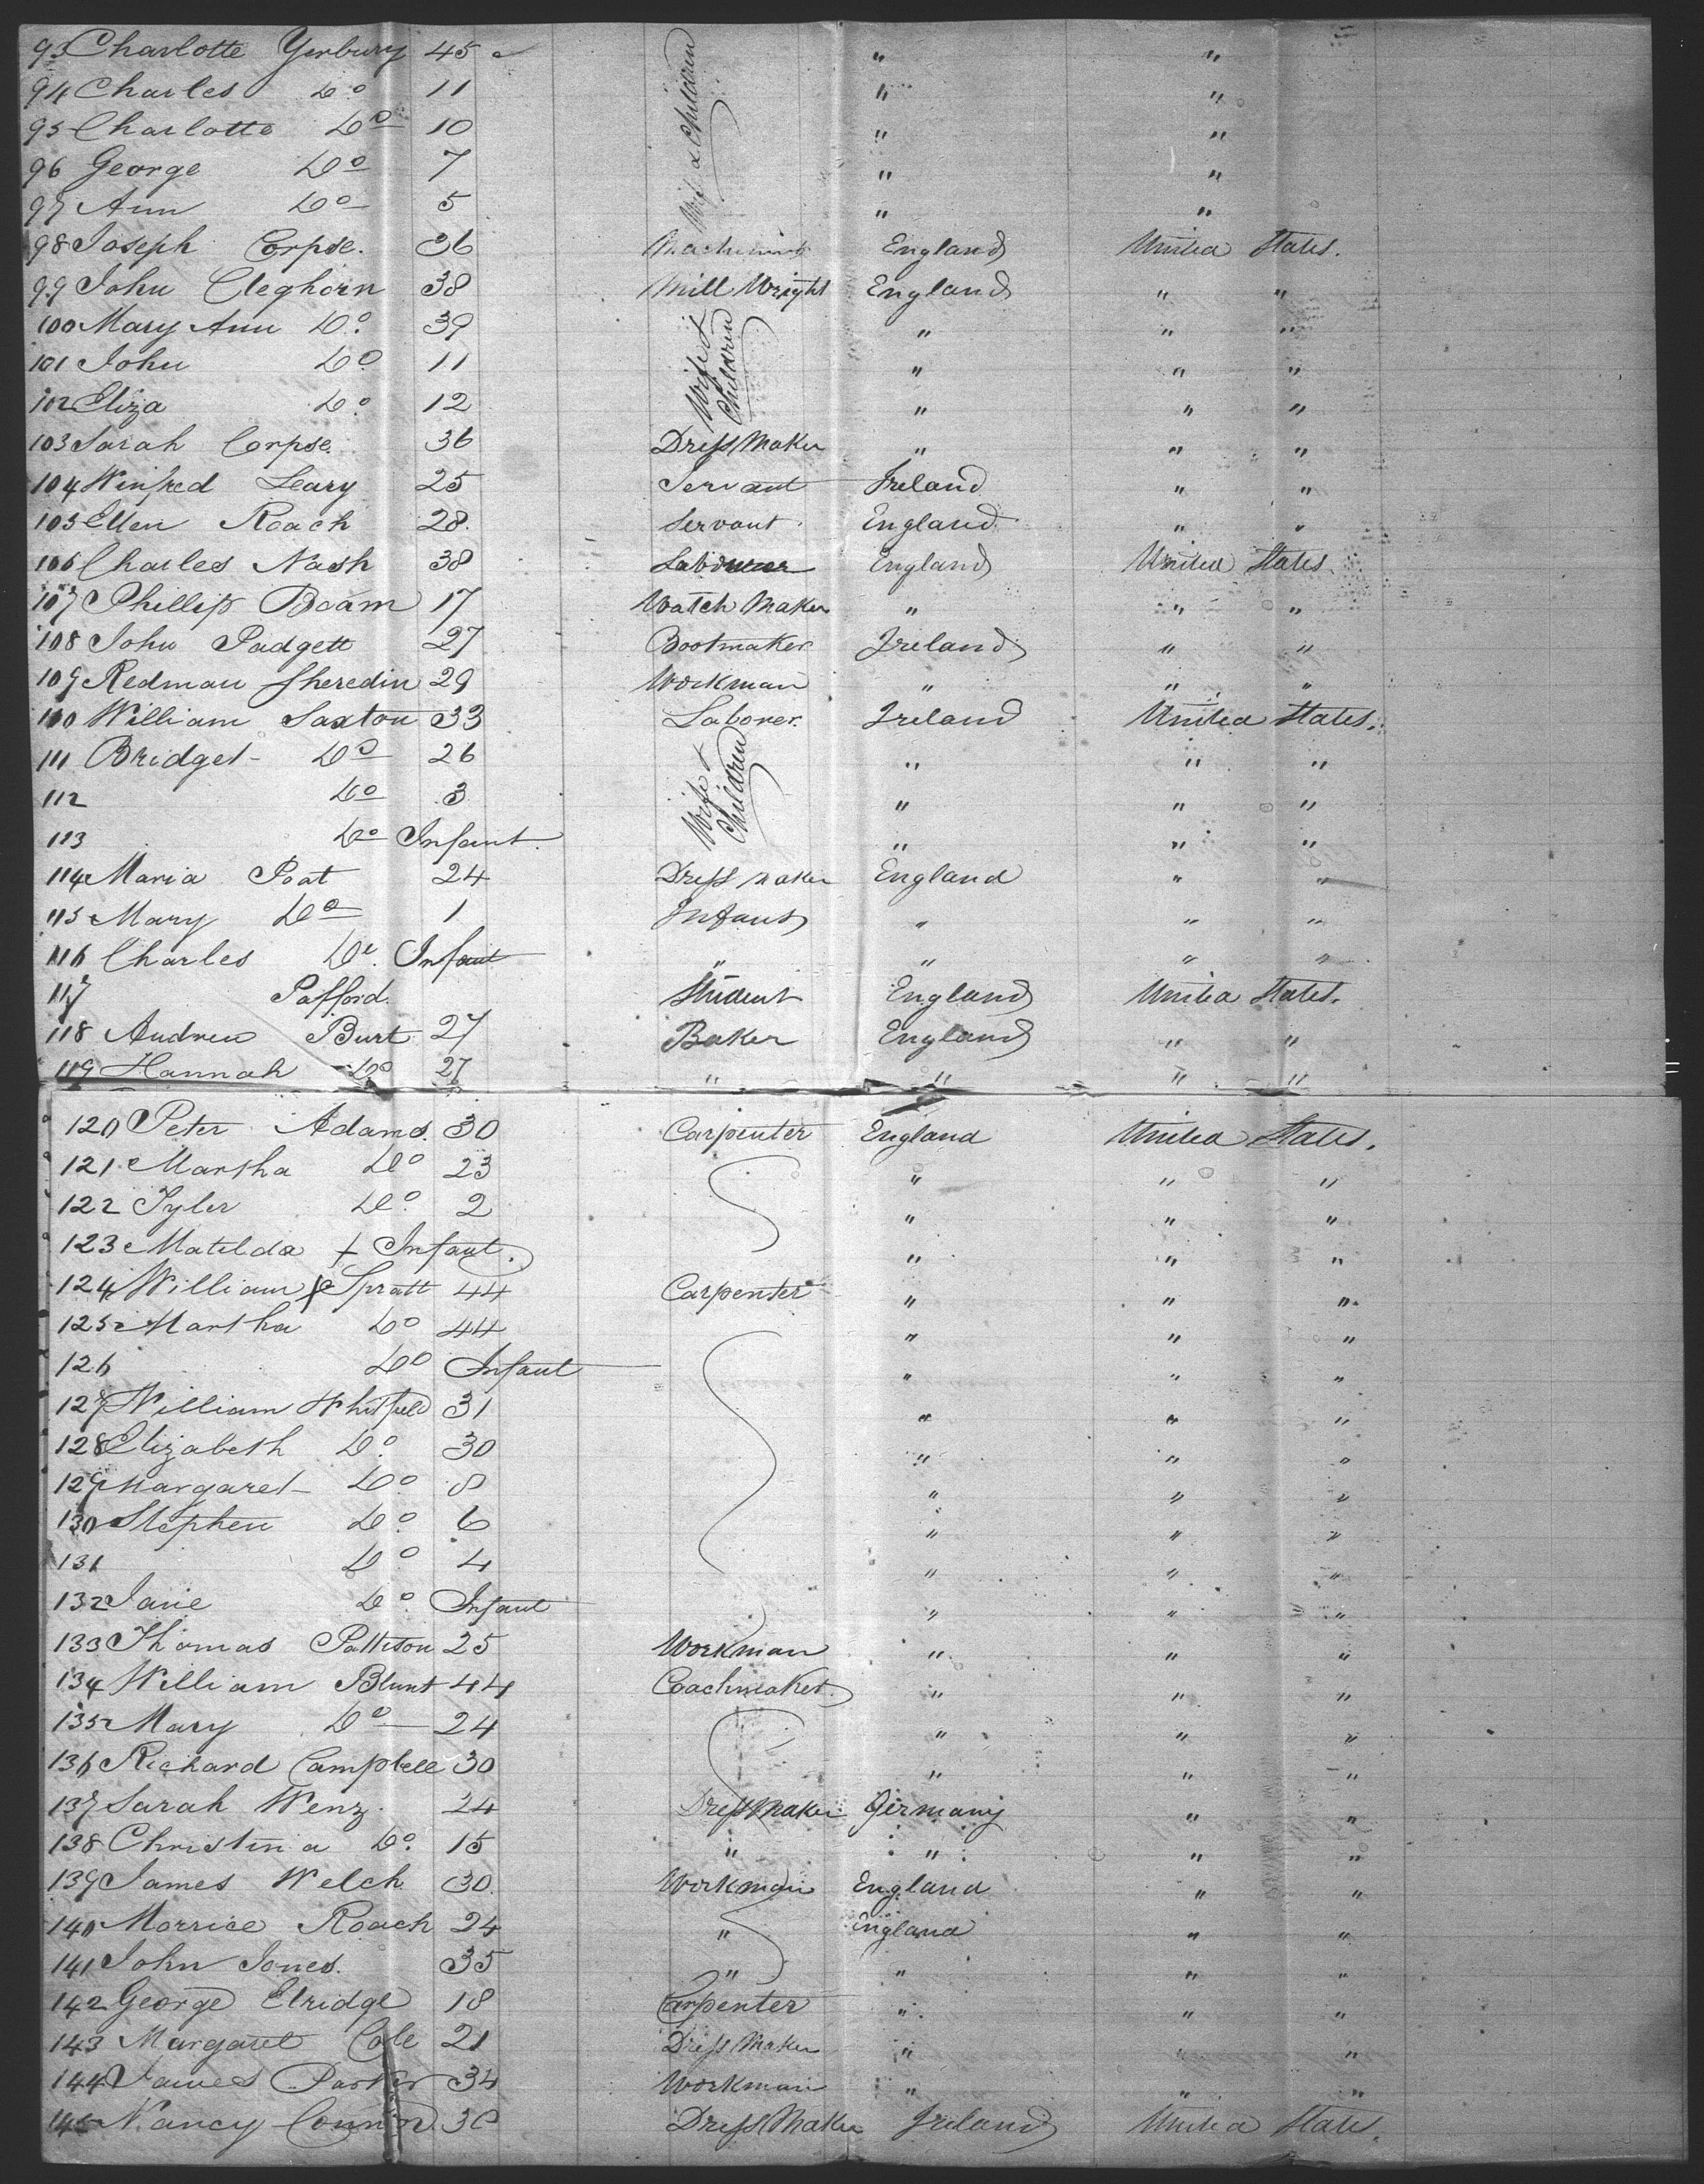 93 Charlotte Yerbury 45 " "
94 Charles Do 11 " "
95 Charlotte Do 10 Wife & Children " "
96 George Do 7 " "
97 Ann Do 5 " "
98 Joseph Corpse. 36 Machinist England United States.
99 John Cleghorn 38 Mill Wright England " "
100 Mary Ann Do 39 " " "
101 John Do 11 Wife & Children " " "
102 Eliza Do 12 " " "
103 Sarah Corpse 36 Dress Maker " " "
104 Winfred Leary 25 Servant Ireland " "
105 Ellen Roach 28. Servant England " "
106 Charles Nash 38 Labourer England United States
107 Phillip Boam 17 Watch Maker " " "
108 John Padgett 27 Bootmaker Ireland " "
109 Redman Sheredin 29 Workman " " "
110 William Saxton 33 Laborer. Ireland United States.
111 Bridget Do 26 " " "
112 Do 3 Wife & Children " " "
113 Do Infant. " " "
114 Maria Poat 24 Dress Maker England " "
115 Mary Do 1 Infant " " "
116 Charles Do Infant " " " "
117 Pafford. Student England United States.
118 Andrew Burt 27 Baker England " "
119 Hannah Do 27 " " " "
120 Peter Adams. 30 Carpenter England United States.
121 Martha Do 23 " " "
122 Tyler Do 2 " " "
123 Matilda + Infant. " " "
124 William Spratt 44 Carpenter " " "
125 Martha Do 44 " " "
126 Do Infant " " "
127 William Whitfield 31 " " "
128 Elizabeth Do 30 " " "
129 Margaret Do 8 " " "
130 Stephen Do 6 " " "
131 Do 4 " " "
132 Jane Do Infant " " "
133 Thomas Pattison 25 Workman " " "
134 William Blunt 44 Coachmaker. " " "
135 Mary Do 24 " " "
136 Richard Campbell 30 " " "
137 Sarah Wenz. 24 Dress Maker Germany " "
138 Christina Do 15 " " " "
139 James Welch 30. Workman England " "
140 Morrice Roach 24 " England " "
141 John Jones. 35 " " " "
142 George Elridge 18 Carpenter " " "
143 Margaret Cole 21 Dress Maker " " "
144 James Parker 34 Workman " " "
145 Nancy Connor 30 Dress Maker Ireland United States.